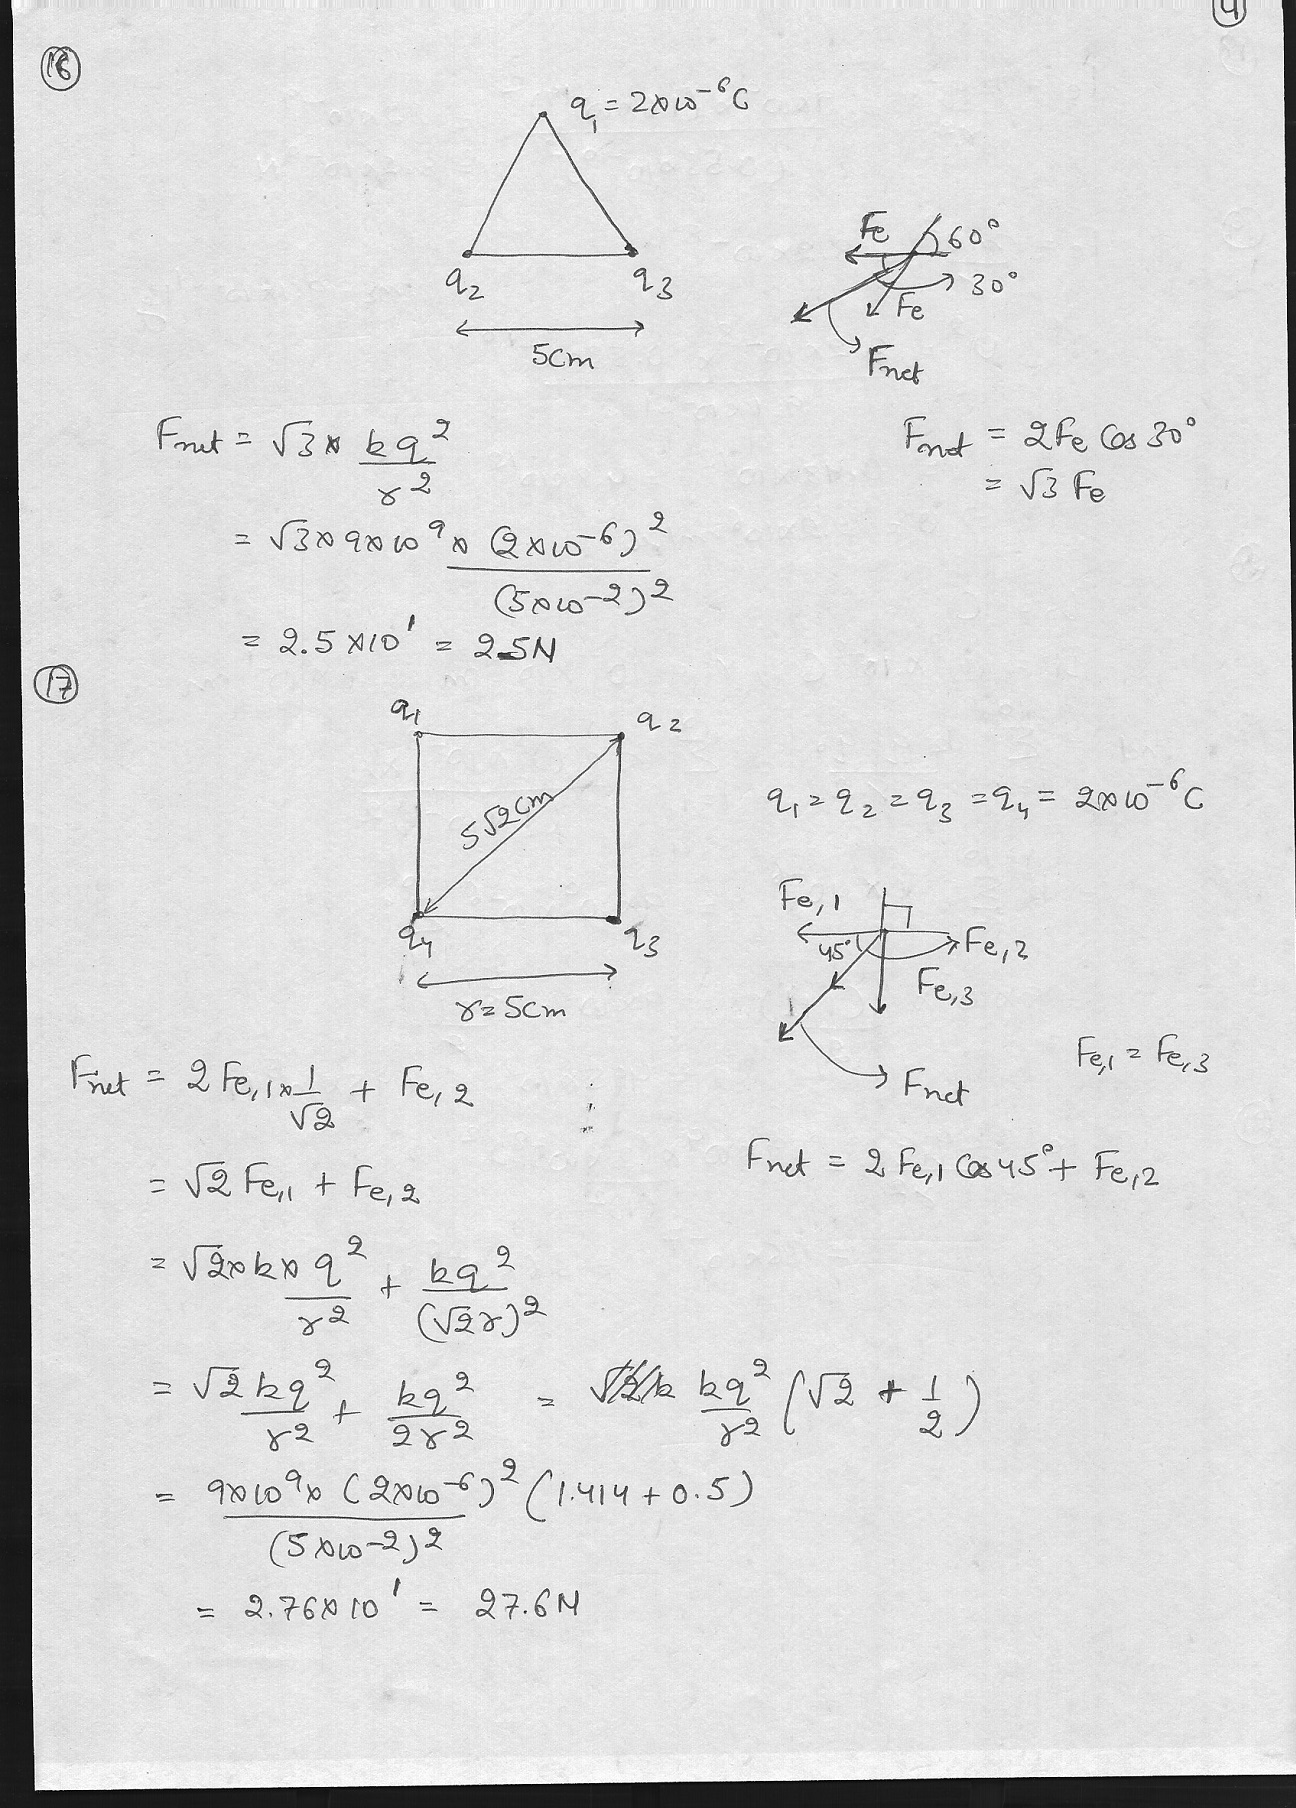 4
16
q₁ = 2×10⁻⁶C
q₂ q₃
5cm
Fe 60°
30°
Fe
Fnet
Fnet = √3 × kq²/r²
Fnet = 2Fe Cos 30°
= √3 Fe
= √3 × 9×10⁹ × (2×10⁻⁶)²/(5×10⁻²)²
= 2.5 ×10¹ = 25N
17
q₁ q₂
5√2cm
q₄ q₃
r = 5cm
q₁ = q₂ = q₃ = q₄ = 2×10⁻⁶C
Fe,1
45° Fe,2
Fe,3
Fnet
Fe,1 = Fe,3
Fnet = 2 Fe,1 × 1/√2 + Fe,2
Fnet = 2 Fe,1 Cos 45° + Fe,2
= √2 Fe,1 + Fe,2
= √2 × k × q²/r² + kq²/(√2r)²
= √2 kq²/r² + kq²/2r² = kq²/r² (√2 + 1/2)
= 9×10⁹ × (2×10⁻⁶)²/(5×10⁻²)² (1.414 + 0.5)
= 2.76×10¹ = 27.6N